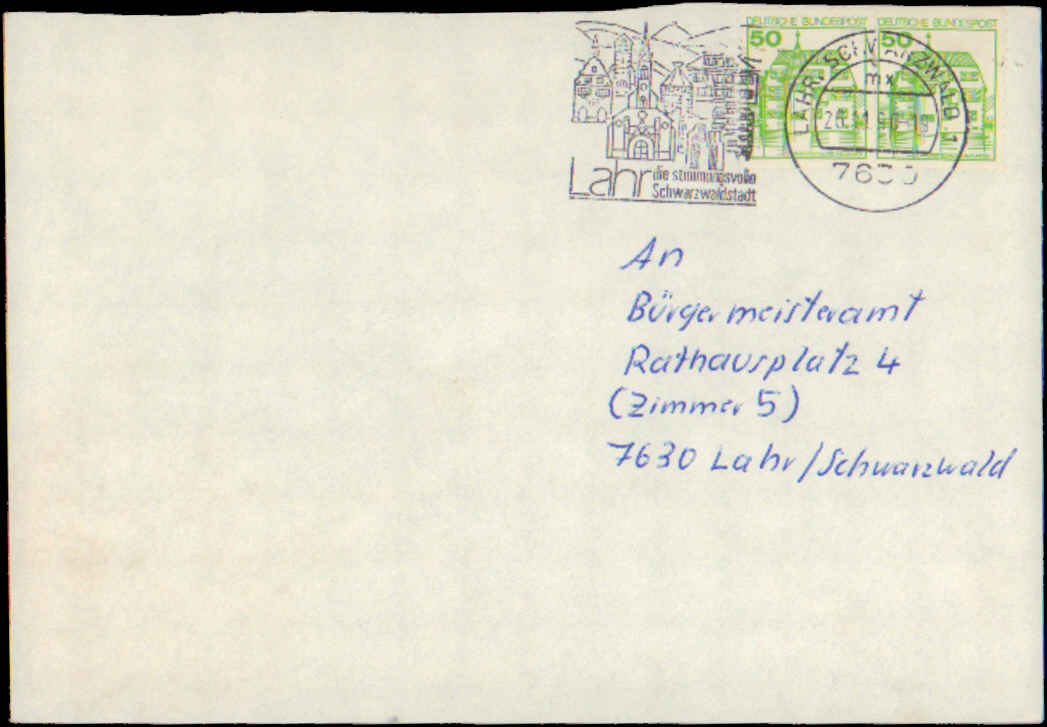 DEUTSCHE BUNDESPOST DEUTSCHE BUNDESPOST
50 50
LAHR, SCHWARZWALD 1
mx
7630
Lahr die stimmungsvolle
Schwarzwaldstadt
An
Bürgermeisteramt
Rathausplatz 4
(Zimmer 5)
7630 Lahr/Schwarzwald